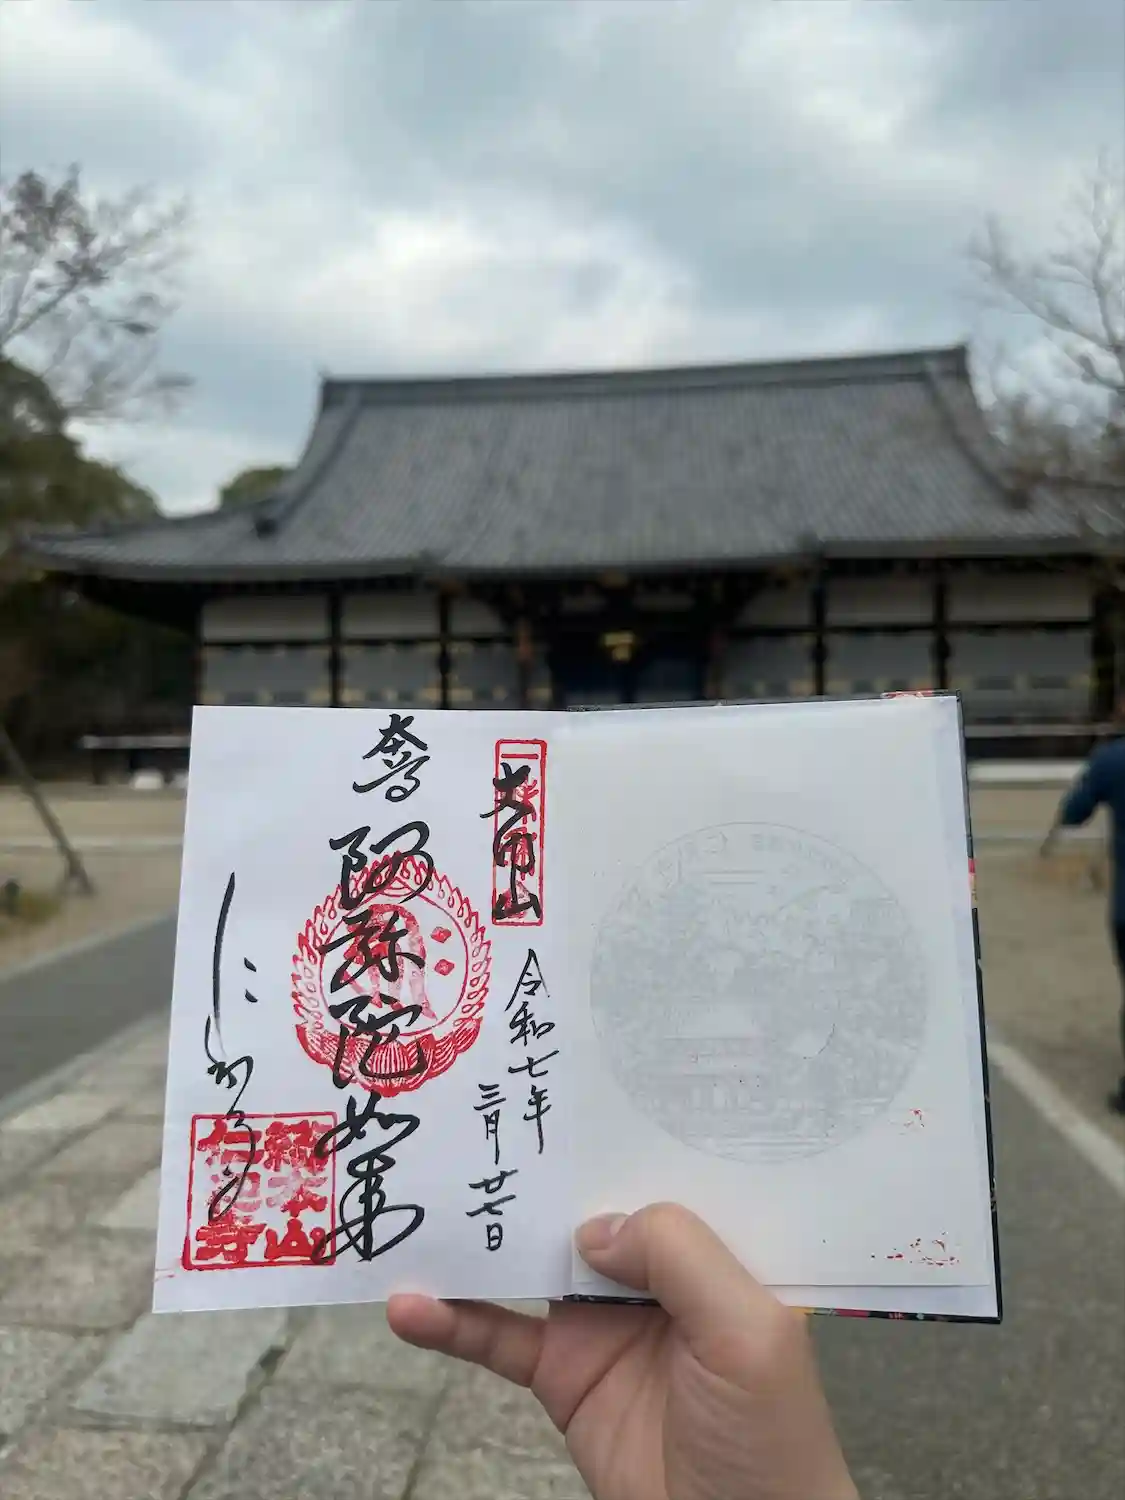 大内山
令和七年
三月廿七日
奉拝
阿弥陀如来
総本山
仁和寺